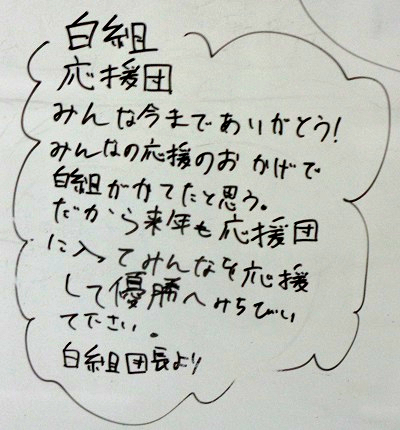 白組
応援団
みんな今までありがとう!
みんなの応援のおかげで
白組がかてたと思う。
だから来年も応援団
に入ってみんなを応援
して優勝へみちびい
て下さい.
白組団長より